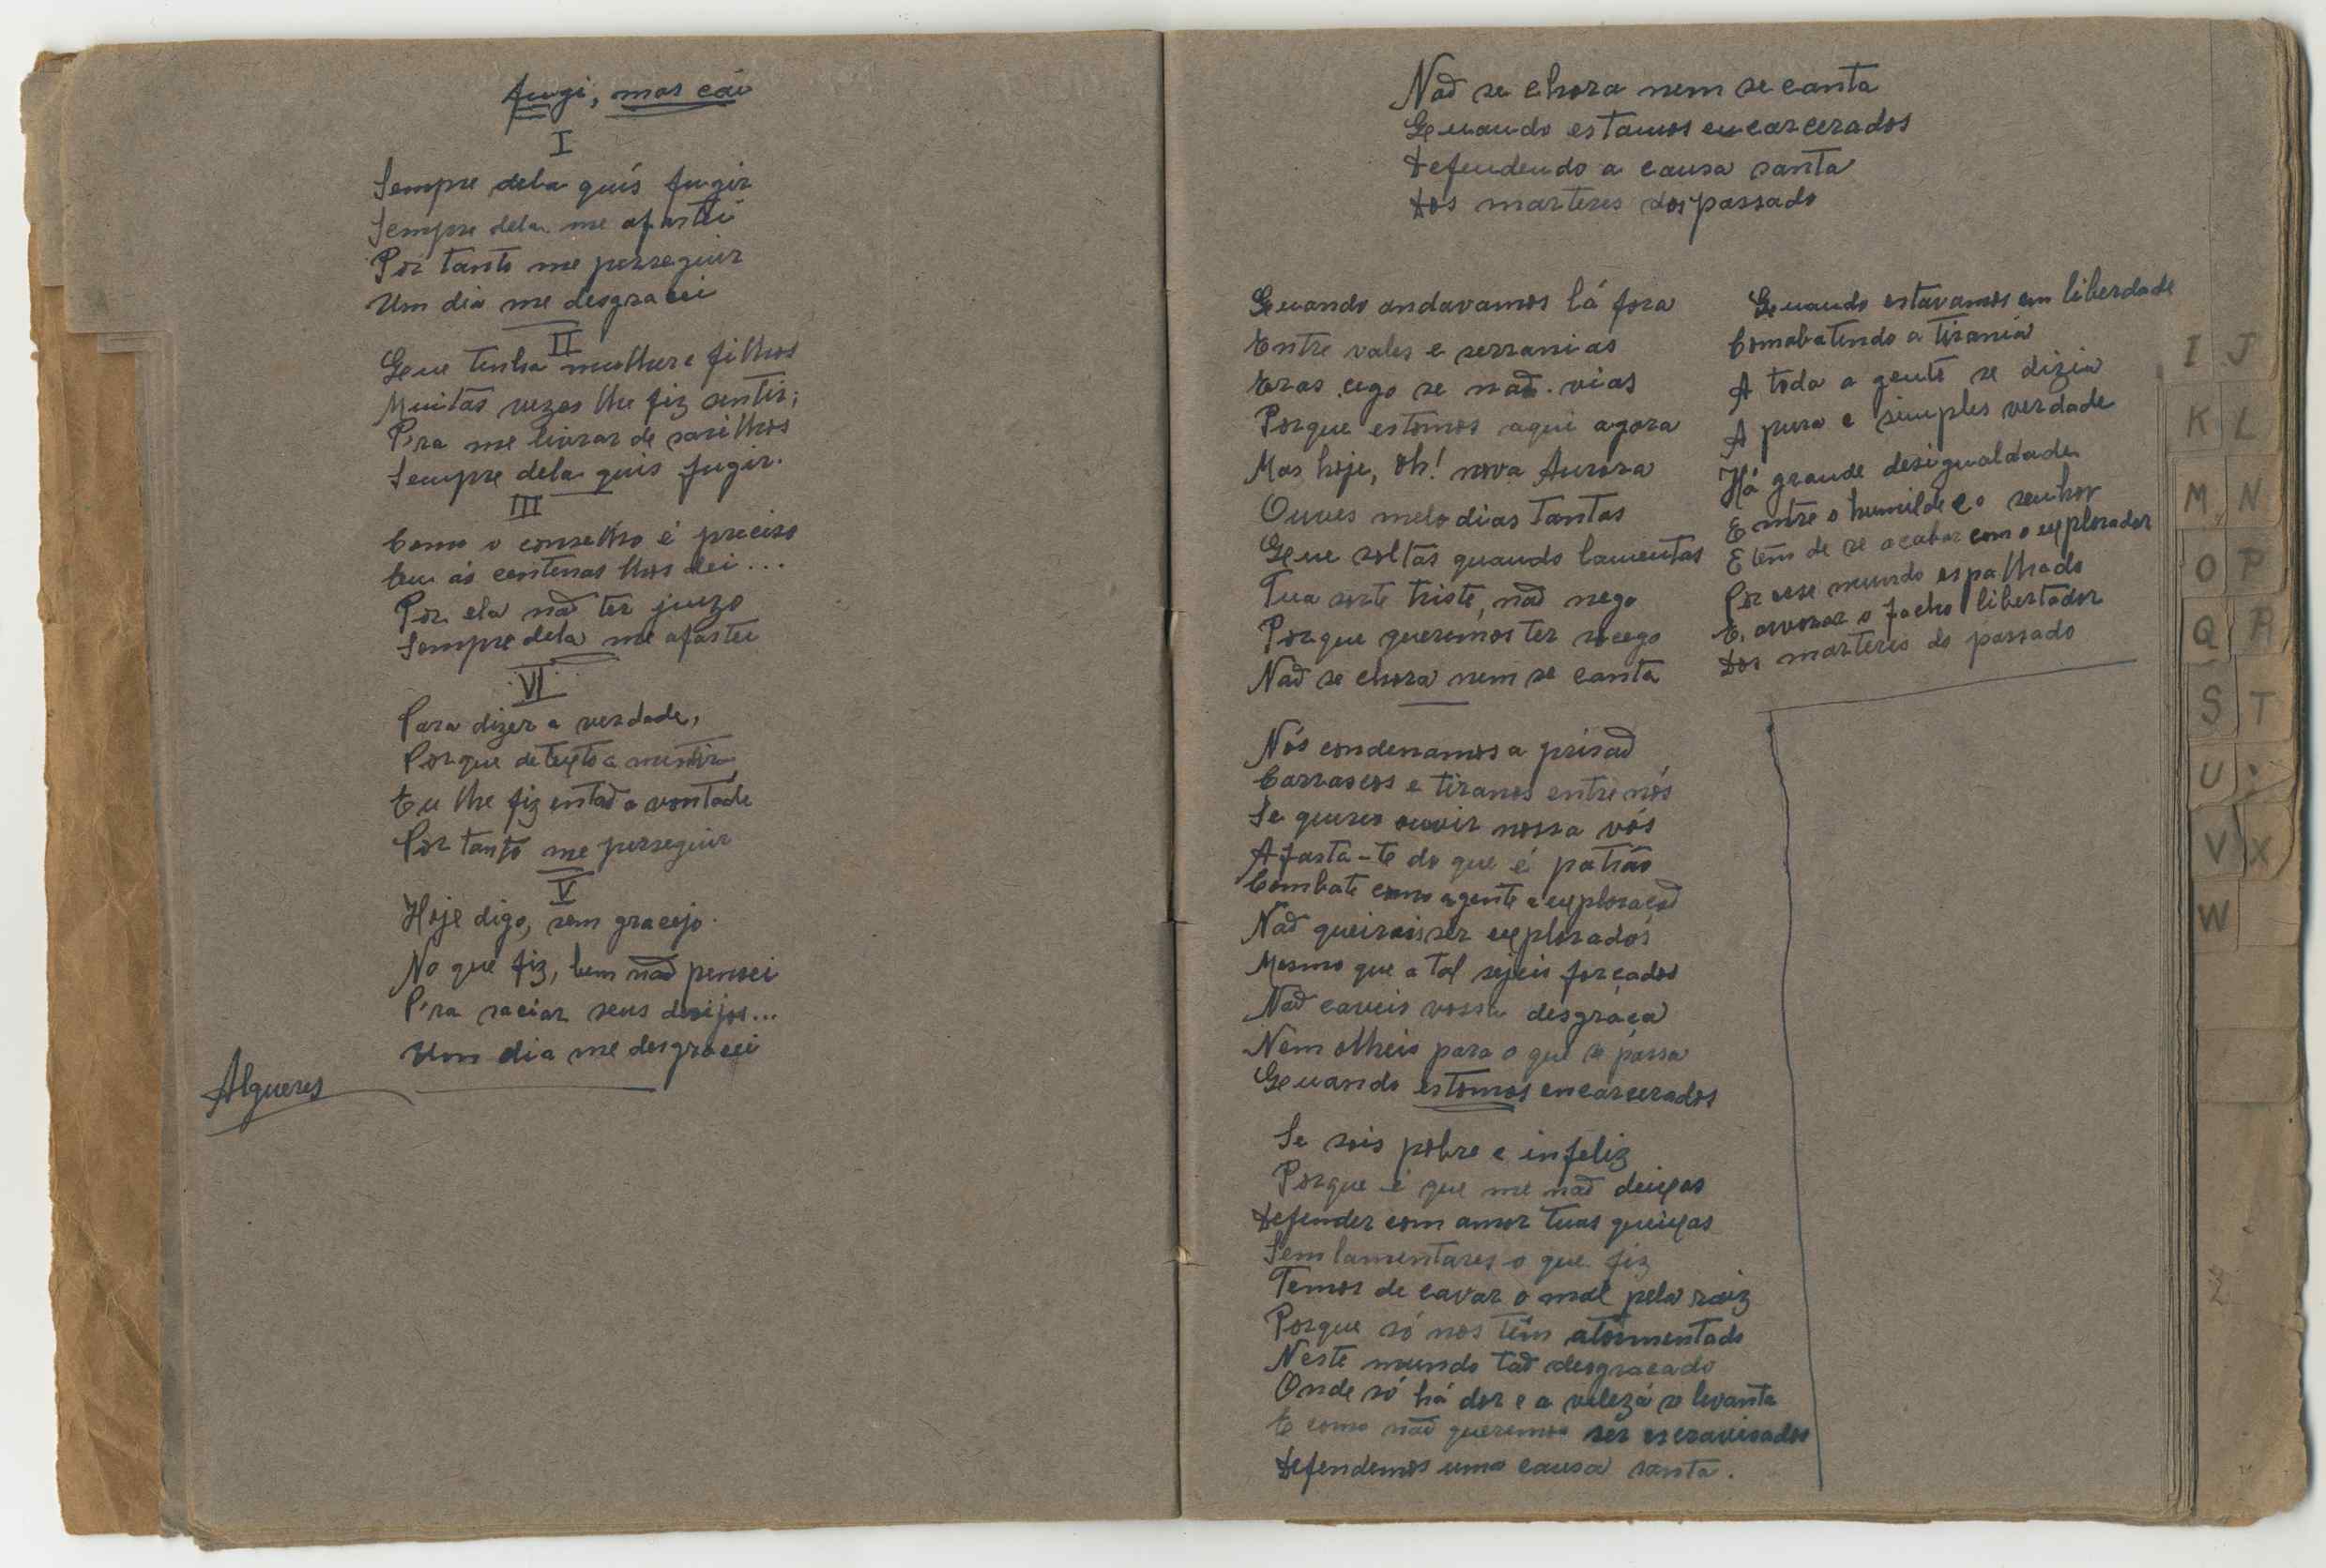 Fugi, mas cái
I
Sempre dela quís fugir
Sempre dela me afastei
Por tanto me perseguir
Um dia me desgracei
II
Que tenha mulher e filhos
Muitas vezes lhe fiz sentir;
P'ra me livrar de sarilhos
Sempre dela quis fugir.
III
Como o conselho é preciso
Eu ás centenas lhos dei...
Por ela não ter juizo
Sempre dela me afastei
VI
Para dizer a verdade,
Porque detexto a mentira
Eu lhe fiz então a vontade
Por tanto me perseguir
V
Hoje digo, sem gracejo.
No que fiz, bem não pensei
P'ra saciar seus desijos...
Um dia me desgracei
Algueres
Não se chora nem se canta
Quando estamos encarcerados
Defendendo a causa santa
Dos marteres dos passado
Quando andavamos lá fora
Entre vales e serranias
Eras cego se não vias
Porque estamos aqui agora
Mas hoje, oh! nova Aurora
Ouves melodias tantas
Que soltas quando lamentas
Tua sorte triste, não nego
Porque queremos ter socego
Não se chora nem se canta
Nós condenamos a prisão
Carrascos e tiranos entre nós
Se queres ouvir nossa vós
Afasta-te do que é patrão
Combate como a gente a exploração
Não queirais ser explorados
Mesmo que a tal sejeis forçados
Não caveis vossa desgraça
Nem olheis para o que se passa
Quando estamos encarcerados
Se sois pobre e infeliz
Porque é que me não deixas
Defender com amor tuas queixas
Sem lamentares o que fiz
Temos de cavar o mal pela raiz
Porque só nos têm atormentado
Neste mundo tão desgraçado
Onde só há dor e a vileza se levanta
E como não queremos ser escravisados
Defendemos uma causa santa.
Quando estavamos em liberdade
Comobatendo a tirania
A toda a gente se dizia
A pura e simples verdade
Há grande desigualdade
Entre o humilde e o senhor
E têm de se acabar com o explorador
Por esse mundo espalhado
E, arvorar o facho libertador
Dos marteres do passado
I J
K L
M N
O P
Q R
S T
U
V X
W
Z